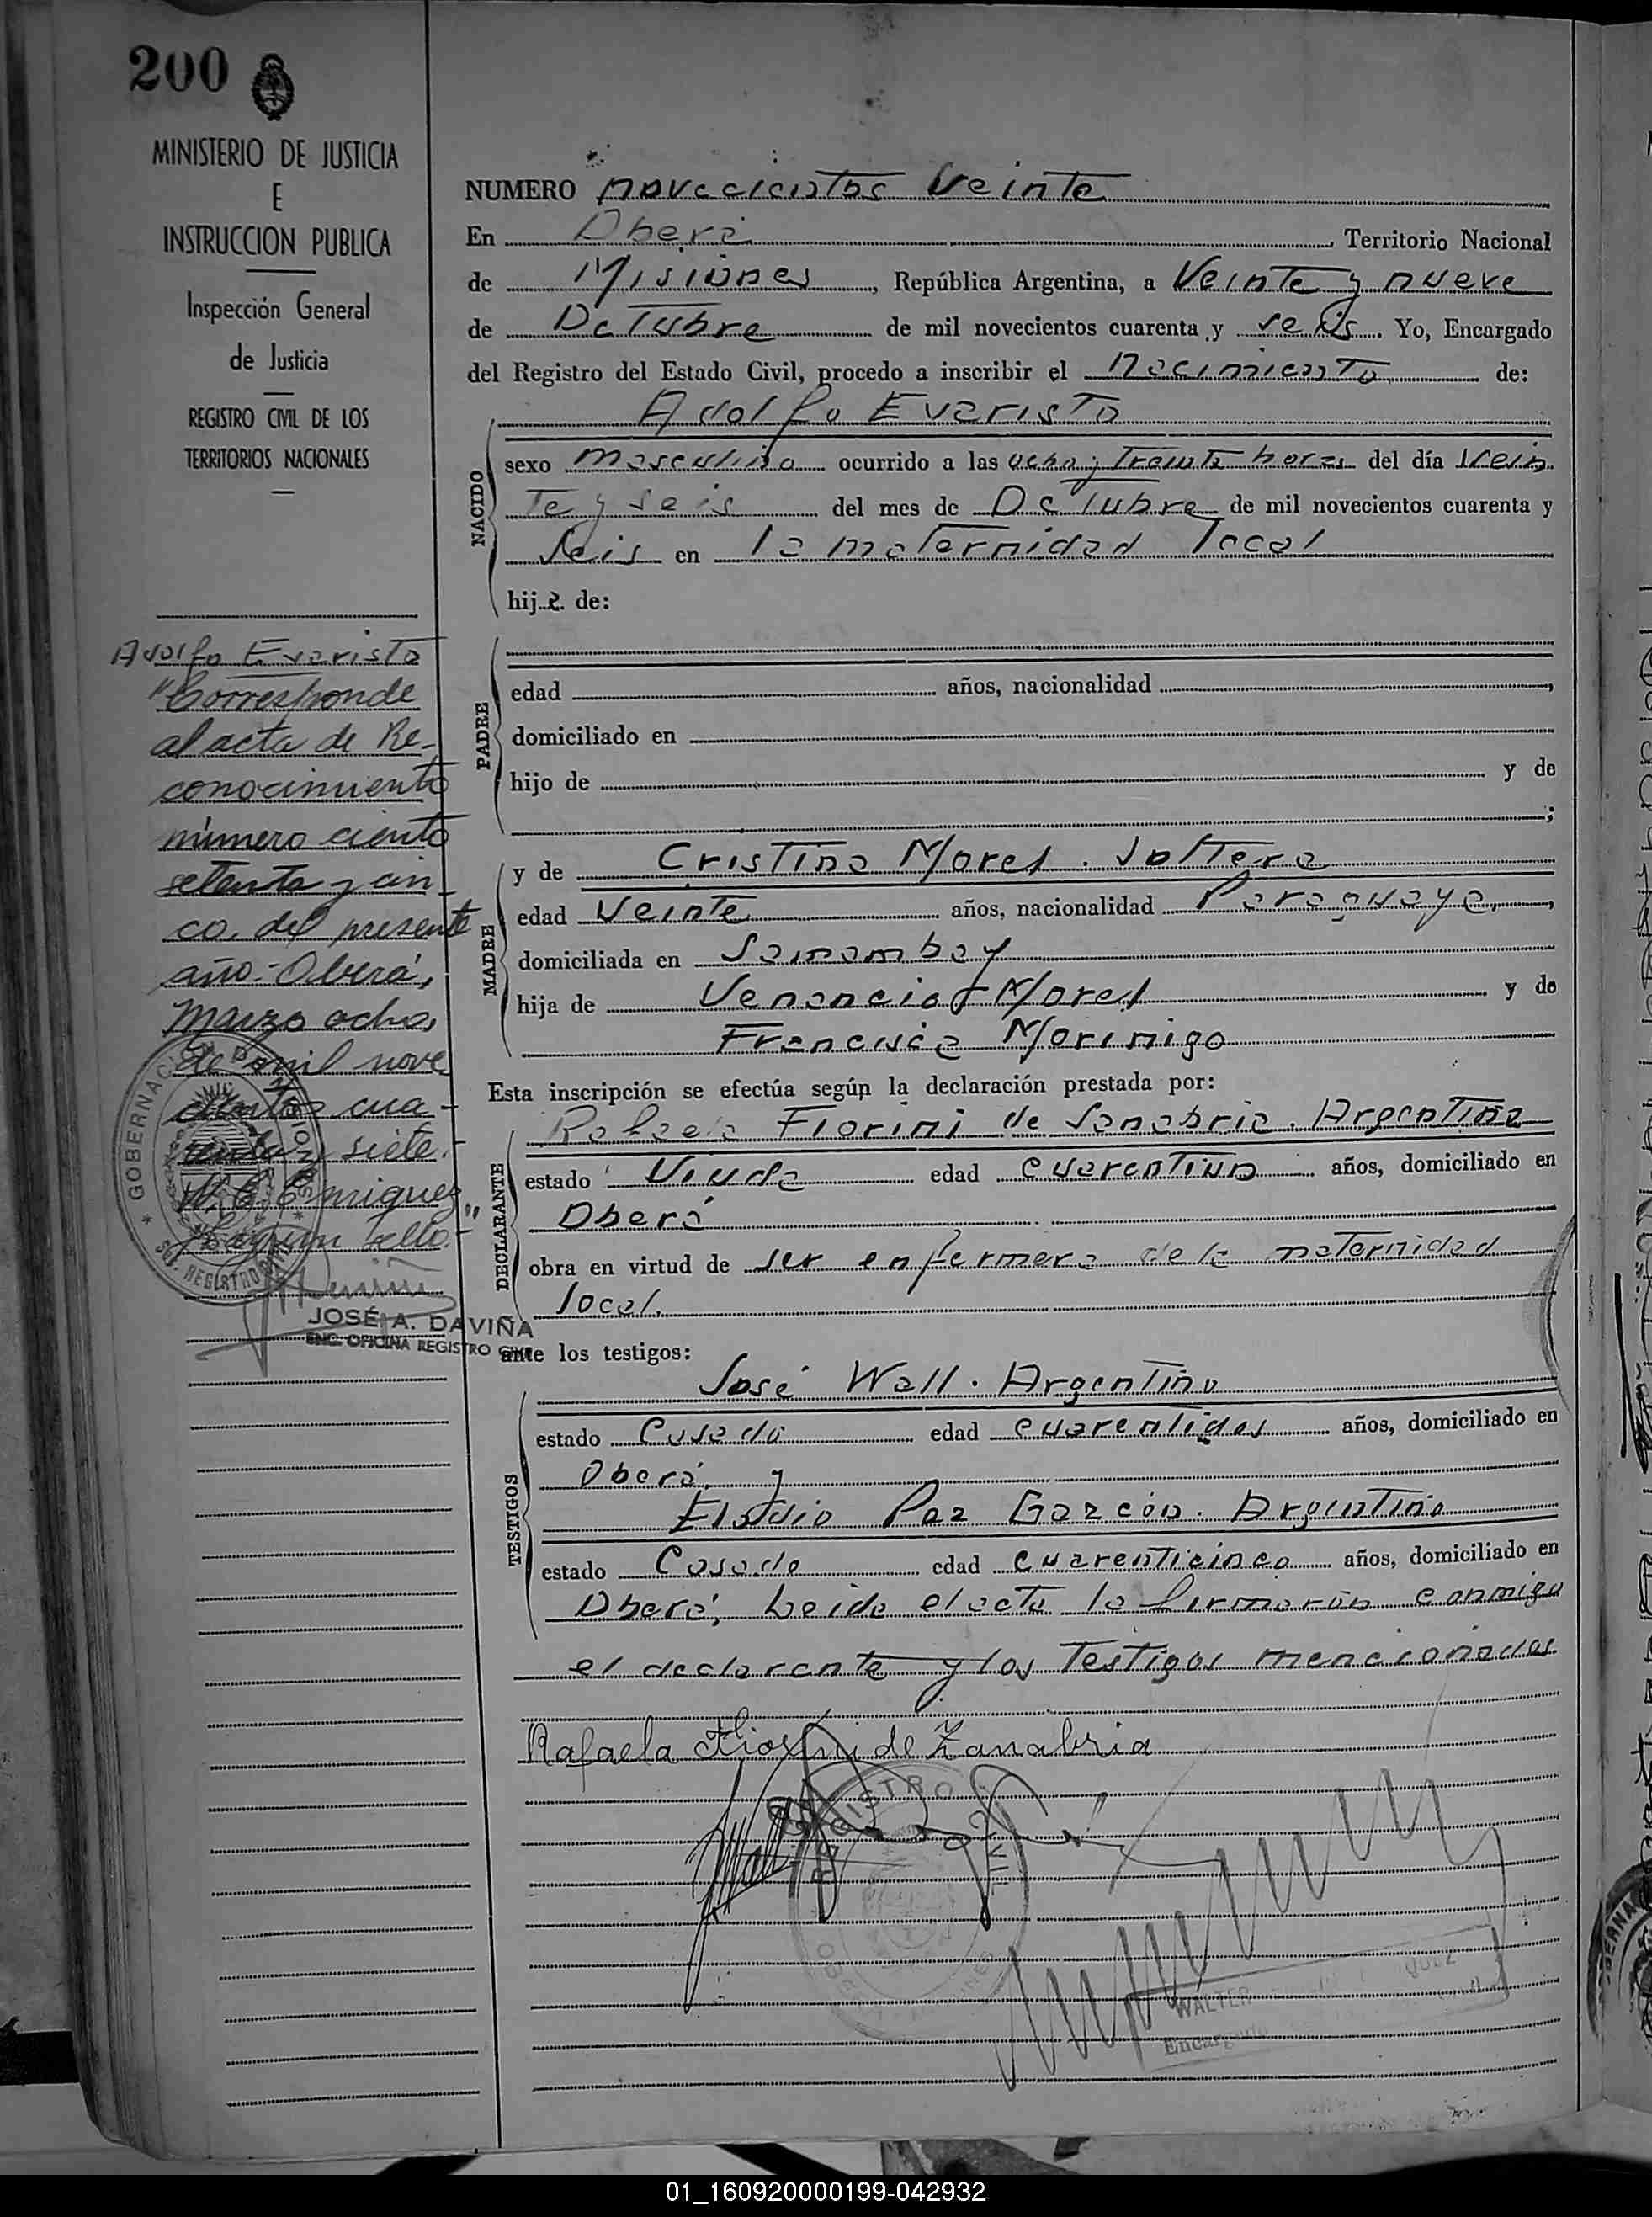 200
MINISTERIO DE JUSTICIA
E
INSTRUCCION PUBLICA
Inspección General
de Justicia
REGISTRO CIVIL DE LOS
TERRITORIOS NACIONALES
Adolfo Evaristo
"Corresponde
al acta de Re-
conocimiento
número ciento
setenta y cin-
co, del presente
año.- Oberá,
Marzo ocho,
de mil nove
cientos cua-
renta y siete.-
JOSÉ A. DAVIÑA
ENC. OFICINA REGISTRO CIVIL
NUMERO novecientos Veinte
En Oberá, Territorio Nacional
de Misiones, República Argentina, a Veinte y nueve
de Octubre de mil novecientos cuarenta y seis. Yo, Encargado
del Registro del Estado Civil, procedo a inscribir el nacimiento de:
Adolfo Evaristo
NACIDO
sexo masculino ocurrido a las ocho y treinta horas del día vein
te y seis del mes de Octubre de mil novecientos cuarenta y
seis en la maternidad local
hijo de:
PADRE
edad años, nacionalidad ,
domiciliado en
hijo de y de
;
MADRE
y de Cristina Morel. Soltera
edad Veinte años, nacionalidad Paraguaya,
domiciliada en Samambay
hija de Venancio Morel y de
Francisca Morinigo
Esta inscripción se efectúa según la declaración prestada por:
DECLARANTE
Rafaela Fiorini de Sanabria. Argentina
estado Viuda edad cuarentiun años, domiciliado en
Oberá
obra en virtud de ser enfermera de la maternidad
local.
ante los testigos:
TESTIGOS
José Wall. Argentino
estado Casado edad cuarentidos años, domiciliado en
Oberá, y
Eladio Paz Garzón. Argentino
estado Casado edad cuarenticinco años, domiciliado en
Oberá, Leida el acta la firmarón conmigo
el declarante y los Testigos mencionados
Rafaela Fiorini de Zanabria
REGISTRO CIVIL
WALTER
Encargado
01_160920000199-042932